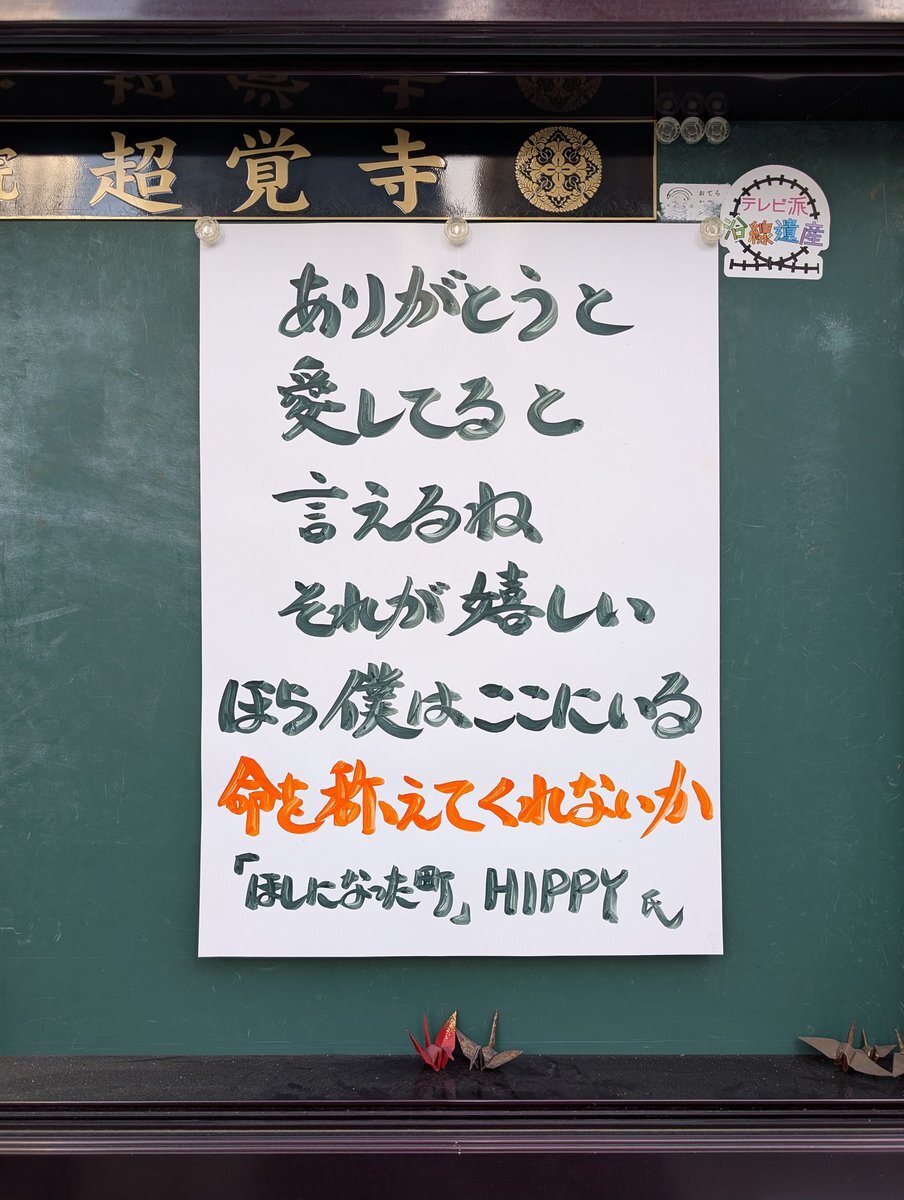 超覚寺
おてら
テレビ派
沿線遺産
ありがとうと
愛してると
言えるね
それが嬉しい
ほら僕はここにいる
命を称えてくれないか
「ほしになった町」HIPPY氏